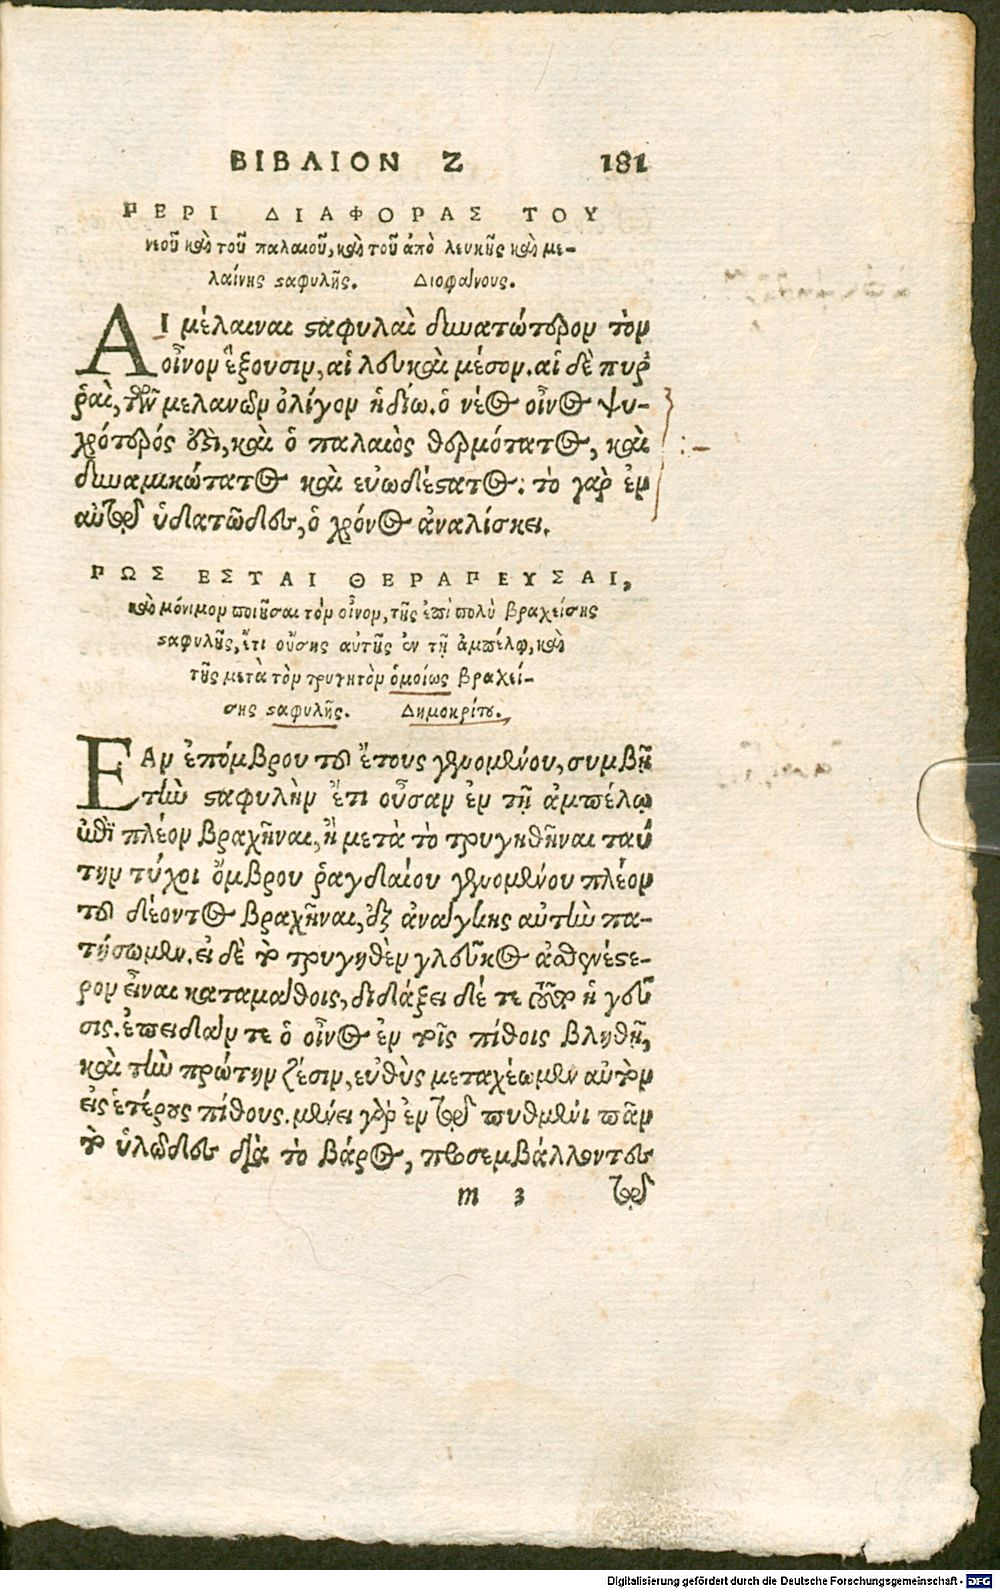 ΒΙΒΛΙΟΝ Ζ 181
ΠΕΡΙ ΔΙΑΦΟΡΑΣ ΤΟΥ
νεοῦ καὶ τοῦ παλαιοῦ, καὶ τοῦ ἀπὸ λευκῆς καὶ με-
λαίνης ςαφυλῆς. Διοφάνους.
ΑΙ μέλαιναι ςαφυλαὶ δυνατώτερον τὸν
οἶνον ἕξουσιν, αἱ λευκαὶ μέσον. αἱ δὲ πυῤ
ῥαὶ, τῶν μελανῶν ὀλίγον ἡδίω. ὁ νέος οἶνος ψυ-
χρότερός ἐςι, καὶ ὁ παλαιὸς θερμότατος, καὶ
δυναμικώτατος καὶ εὐωδέςατος: τὸ γὰρ ἐν
αὐτῷ ὑδατῶδες, ὁ χρόνος ἀναλίσκει.
ΠΩΣ ΕΣΤΑΙ ΘΕΡΑΠΕΥΣΑΙ,
καὶ μόνιμον ποιῆσαι τὸν οἶνον, τῆς ἐπὶ πολὺ βραχείσης
ςαφυλῆς, ἔτι οὔσης αὐτῆς ἐν τῇ ἀμπέλῳ, καὶ
τῆς μετὰ τὸν τρυγητὸν ὁμοίως βραχεί-
σης ςαφυλῆς. Δημοκρίτου.
ΕΑν ἐπόμβρου τοῦ ἔτους γενομένου, συμβῇ
τὴν ςαφυλὴν ἔτι οὖσαν ἐν τῇ ἀμπέλῳ
ἐπὶ πλέον βραχῆναι, ἢ μετὰ τὸ τρυγηθῆναι ταύ
την τύχοι ὄμβρου ῥαγδαίου γενομένου πλέον
τοῦ δέοντος βραχῆναι, ἐξ ἀνάγκης αὐτὴν πα-
τήσωμεν. εἰ δὲ τὸ τρυγηθὲν γλεῦκος ἀσθενέςε-
ρον εἶναι καταμάθοις, διδάξει δέ σε τοῦτο ἡ γεῦ
σις. ἐπειδάν τε ὁ οἶνος ἐν τοῖς πίθοις βληθῇ,
καὶ τὴν πρώτην ζέσιν, εὐθὺς μεταχέωμεν αὐτὸν
εἰς ἑτέρους πίθους. μένει γὰρ ἐν τῷ πυθμένι πᾶν
τὸ ὑλῶδες διὰ τὸ βάρος, προσεμβάλλοντες
m 3 τῷ
Digitalisierung gefördert durch die Deutsche Forschungsgemeinschaft - DFG